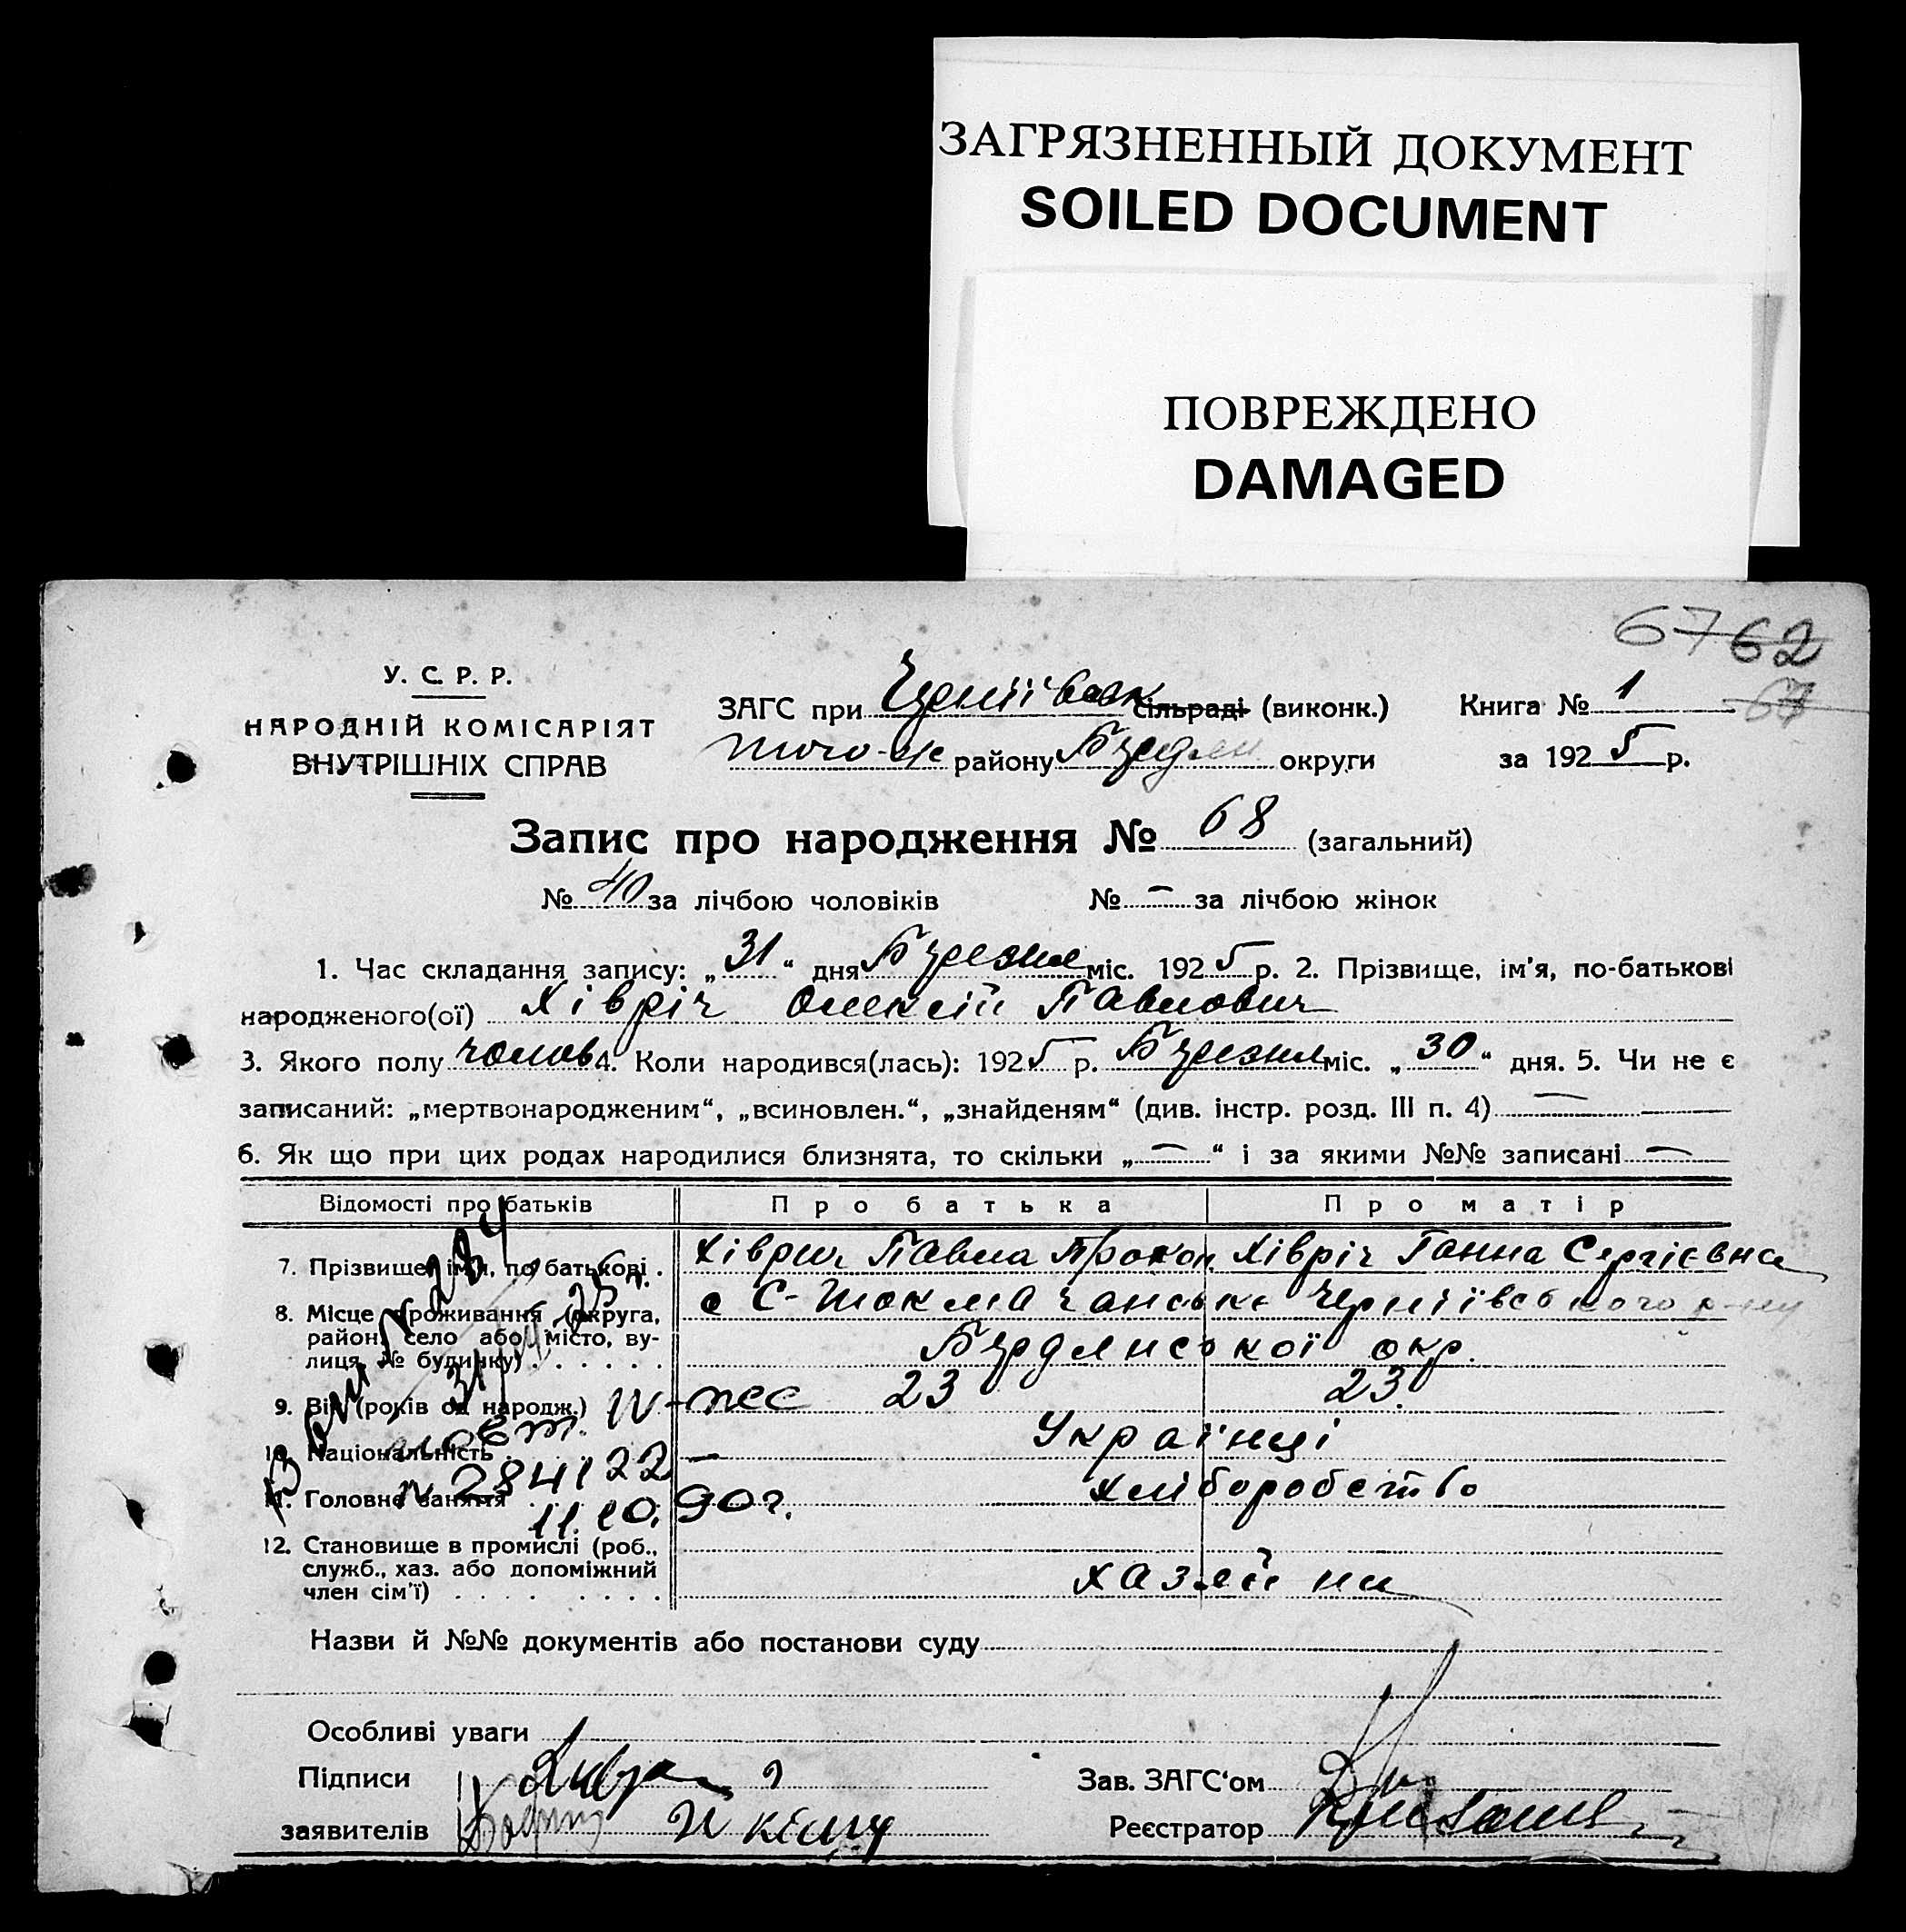 ЗАГРЯЗНЕННЫЙ ДОКУМЕНТ
SOILED DOCUMENT
ПОВРЕЖДЕНО
DAMAGED
67 62
67
У. С. Р. Р.
НАРОДНІЙ КОМІСАРІЯТ
ВНУТРІШНІХ СПРАВ
ЗАГС при сільраді (виконк.)
того-ж району округи
Книга № 1
за 1925 р.
Запис про народження № 68 (загальний)
№ 40 за лічбою чоловіків № — за лічбою жінок
1. Час складання запису: „31“ дня Березня міс. 1925 р. 2. Прізвище, ім'я, по-батькові
народженого(ої) Хівріч Олексій Павлович
3. Якого полу чолов 4. Коли народився(лась): 1925 р. Березня міс. „30“ дня. 5. Чи не є
записаний: „мертвонародженим“, „всиновлен.“, „знайденям“ (див. інстр. розд. III п. 4) —
6. Як що при цих родах народилися близнята, то скільки „—“ і за якими №№ записані —
Відомості про батьків Про батька Про матір
7. Прізвище, ім'я, по батькові. Хіврич Павла Прокоп. Хівріч Ганна Сергієвна
8. Місце проживання (округа,
район, село або місто, ву-
лиця, № будинку)
с С-Токмачанське р-ну
Бердянської окр.
9. Вік (років од народж.) 23 23.
10. Національність Українці
11. Головне заняття хліборобство
IV-ЖС
№ 284122
11.10.90г.
12. Становище в промислі (роб.,
служб., хаз. або допоміжний
член сім'ї)
хазяїни
Назви й №№ документів або постанови суду
Особливі уваги
Підписи
заявителів
Зав. ЗАГС'ом
Реєстратор